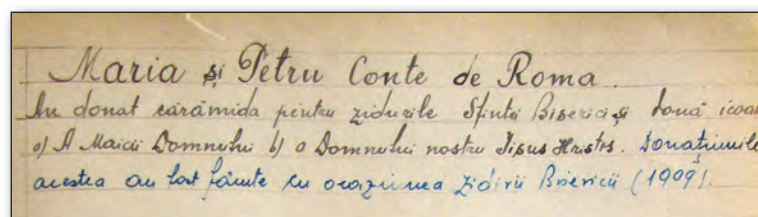 Maria și Petru Conte de Roma.
Au donat cărămida pentru zidurile Sfintei Biserici și două icoan
a) A Maicii Domnului b) a Domnului nostru Iisus Hristos. Donațiunile
acestea au fost făcute cu ocaziunea zidirii Bisericii (1909).